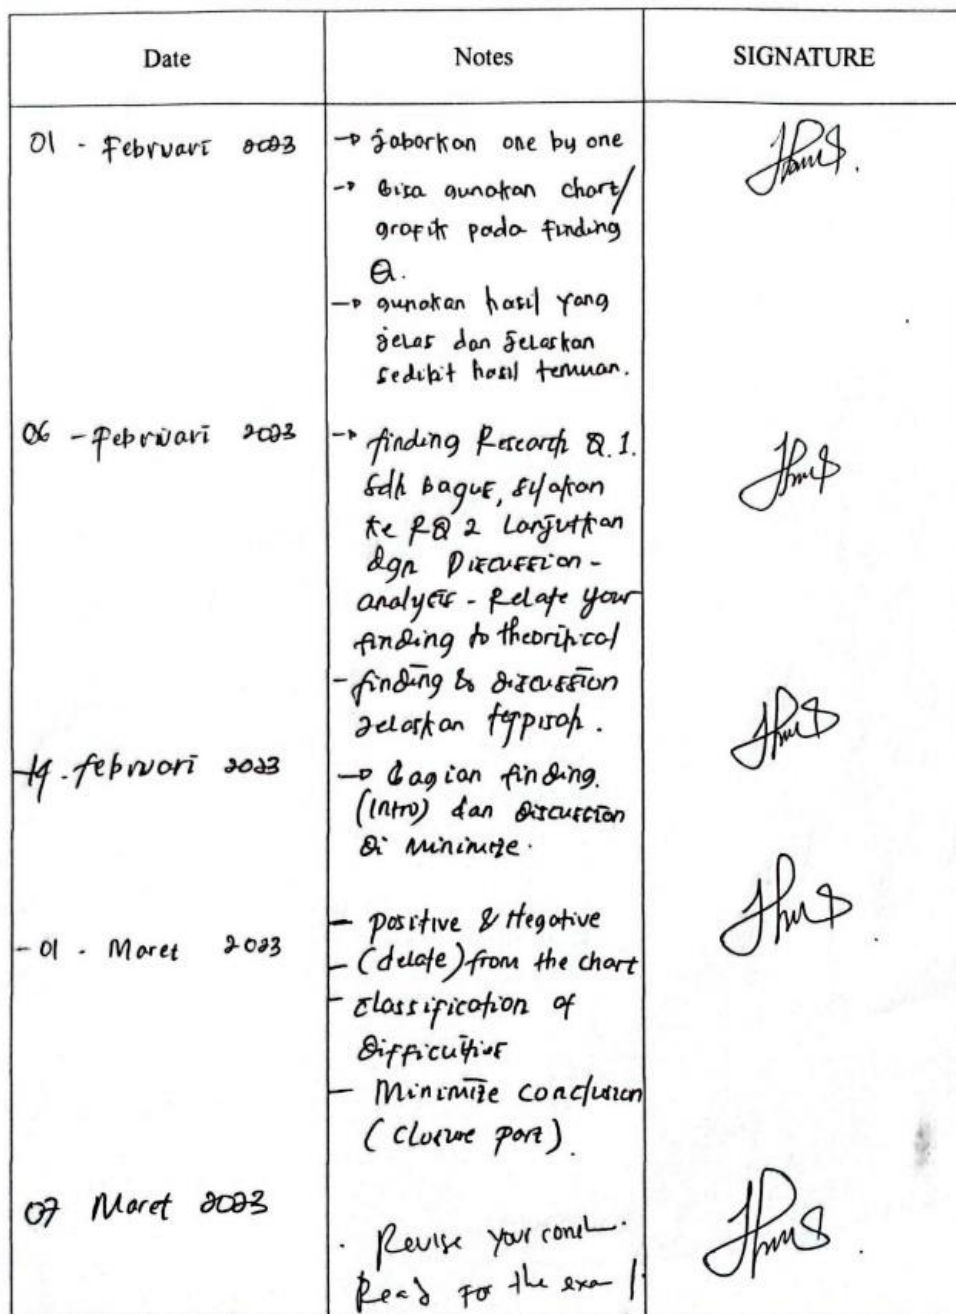 Date Notes SIGNATURE
01 - Februari 2023 → jabarkan one by one
→ Bisa gunakan chart/
grafik pada Finding
Q.
→ gunakan hasil yang
jelas dan jelaskan
sedikit hasil temuan.
06 - Februari 2023 → finding Research Q.1.
sdh bagus, silakan
ke RQ 2 Lanjutkan
dgn Discussion -
analysis - Relate your
finding to
- finding & discussion
jelaskan terpisah.
14 - februari 2023 → Bagian finding.
(intro) dan Discussion
Di minimize.
- 01 - Maret 2023 - positive & Negative
- (delate) from the chart
- classification of
- Minimize conclusion
(closure part).
07 Maret 2023
. Revise your
Read For the